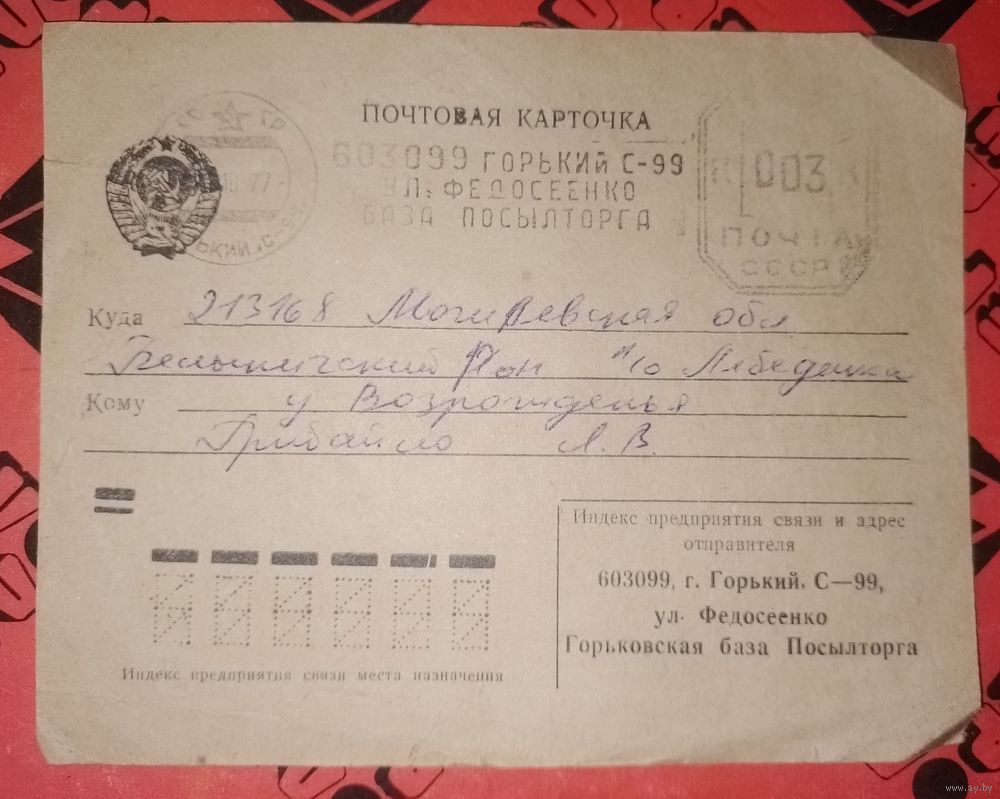 ПОЧТОВАЯ КАРТОЧКА
603099 ГОРЬКИЙ С-99
УЛ. ФЕДОСЕЕНКО
БАЗА ПОСЫЛТОРГА
003
ПОЧТА
СССР
77
Куда 213168 Могилевская обл
Белыничский Р-он п/о Лебедянка
Кому у Возрожденья
Грибайло Л. В.
Индекс предприятия связи и адрес
отправителя
603099, г. Горький, С—99,
ул. Федосеенко
Горьковская база Посылторга
Индекс предприятия связи места назначения
www.ay.by